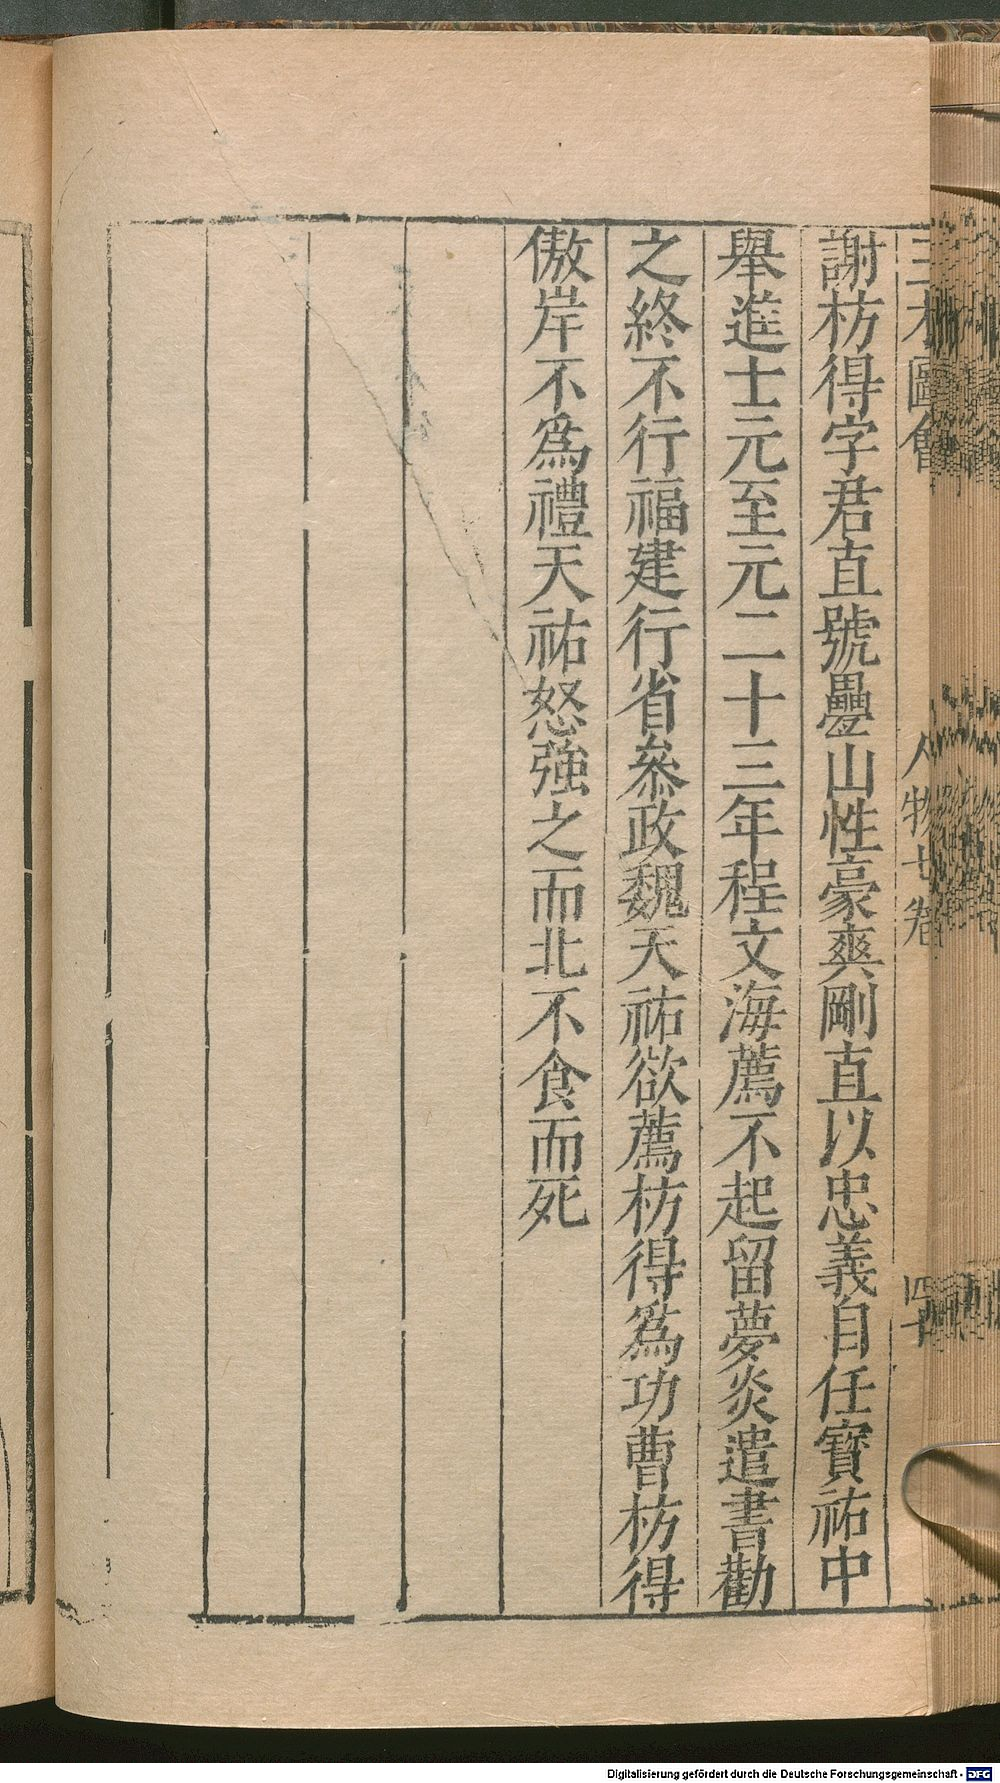 三才圖會 人物七卷 四十
謝枋得字君直號疊山性豪爽剛直以忠義自任寳祐中
舉進士元至元二十三年程文海薦不起留夢炎遣書勸
之終不行福建行省叅政魏天祐欲薦枋得爲功曹枋得
傲岸不爲禮天祐怒強之而北不食而死
Digitalisierung gefördert durch die Deutsche Forschungsgemeinschaft - DFG